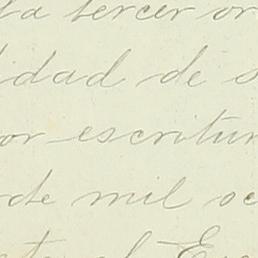 ta tercer or
idad de s
or escritur
de mil oc